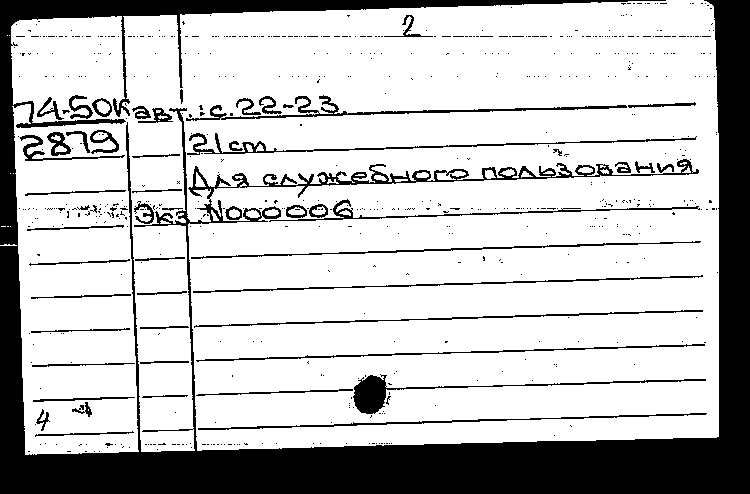 2
74-50К авт.: с. 22-23.
2879 21 cm.
Для служебного пользования.
Экз. N000006.
4